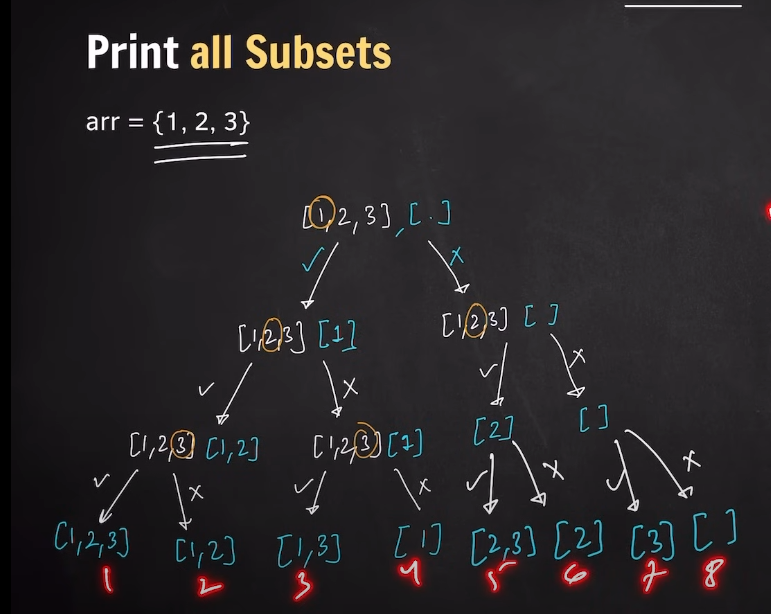 Print all Subsets
arr = {1, 2, 3}
[1,2,3], [.]
✓ x
[1,2,3] [1] [1,2,3] [ ]
✓ x ✓ x
[1,2,3] [1,2] [1,2,3] [1] [2] [ ]
✓ x ✓ x ✓ x ✓ x
[1,2,3] [1,2] [1,3] [1] [2,3] [2] [3] [ ]
1 2 3 4 5 6 7 8